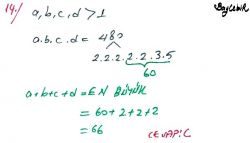 14.) a,b,c,d > 1
a.b.c.d = 480
2.2.2.2.2.3.5
60
a+b+c+d = EN BÜYÜK
= 60+2+2+2
= 66
CEVAP: C